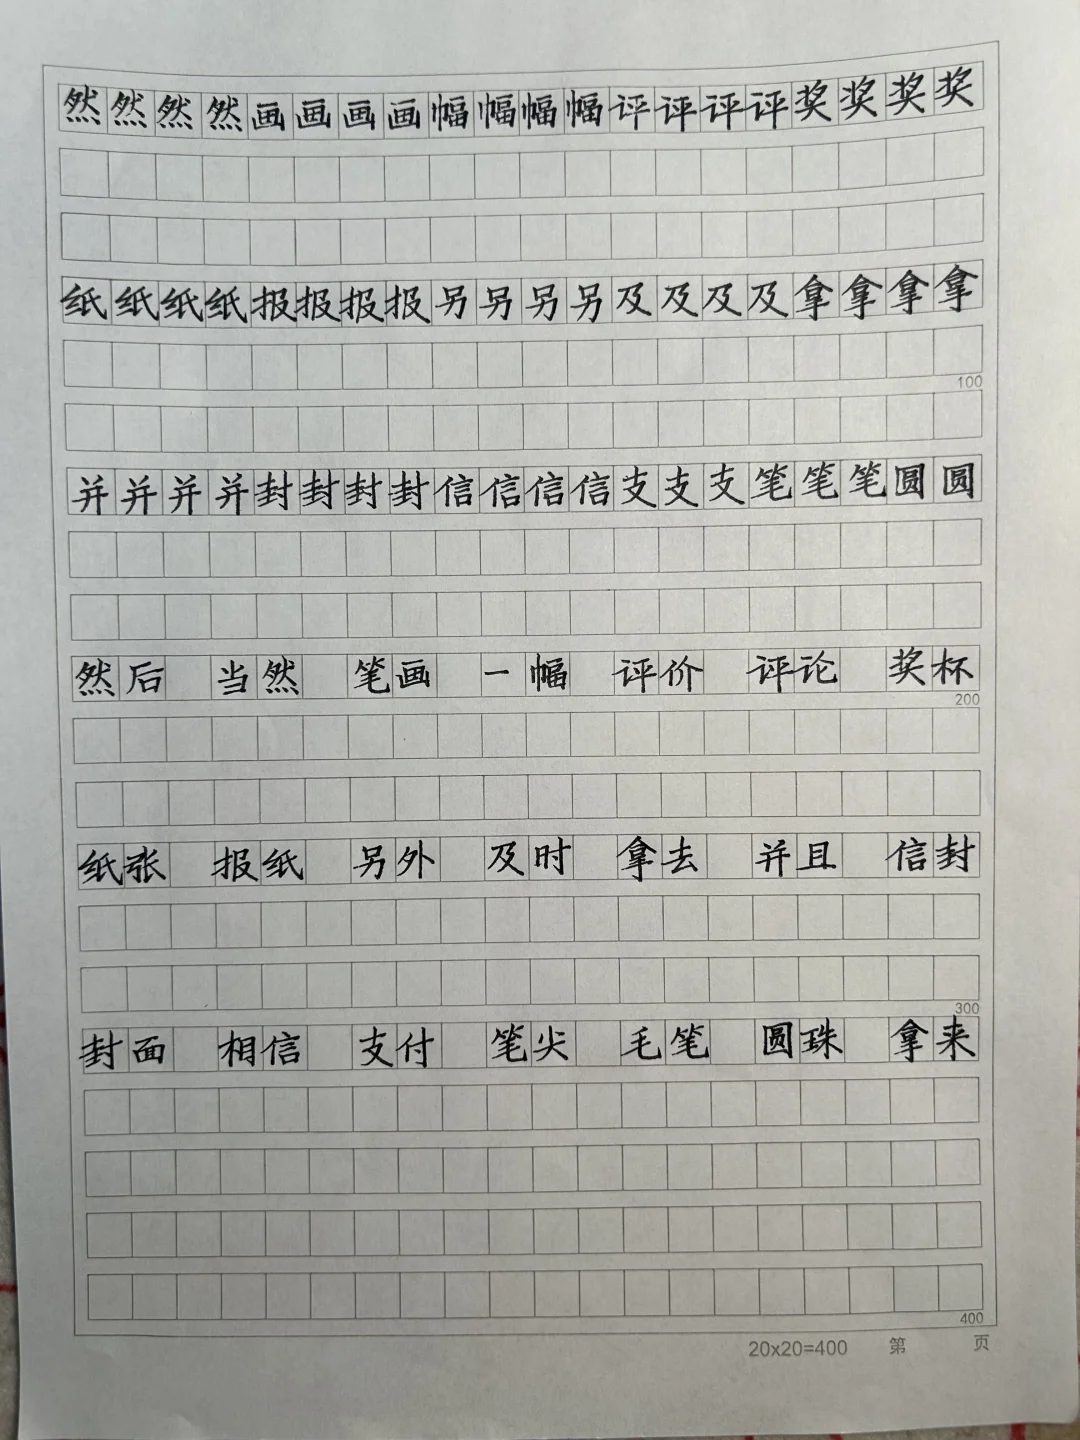 然然然然画画画画幅幅幅幅评评评评奖奖奖奖
纸纸纸纸报报报报另另另另及及及及拿拿拿拿
100
并并并并封封封封信信信信支支支笔笔笔圆圆
然后 当然 笔画 一幅 评价 评论 奖杯
200
纸张 报纸 另外 及时 拿去 并且 信封
300
封面 相信 支付 笔尖 毛笔 圆珠 拿来
400
20x20=400 第 页